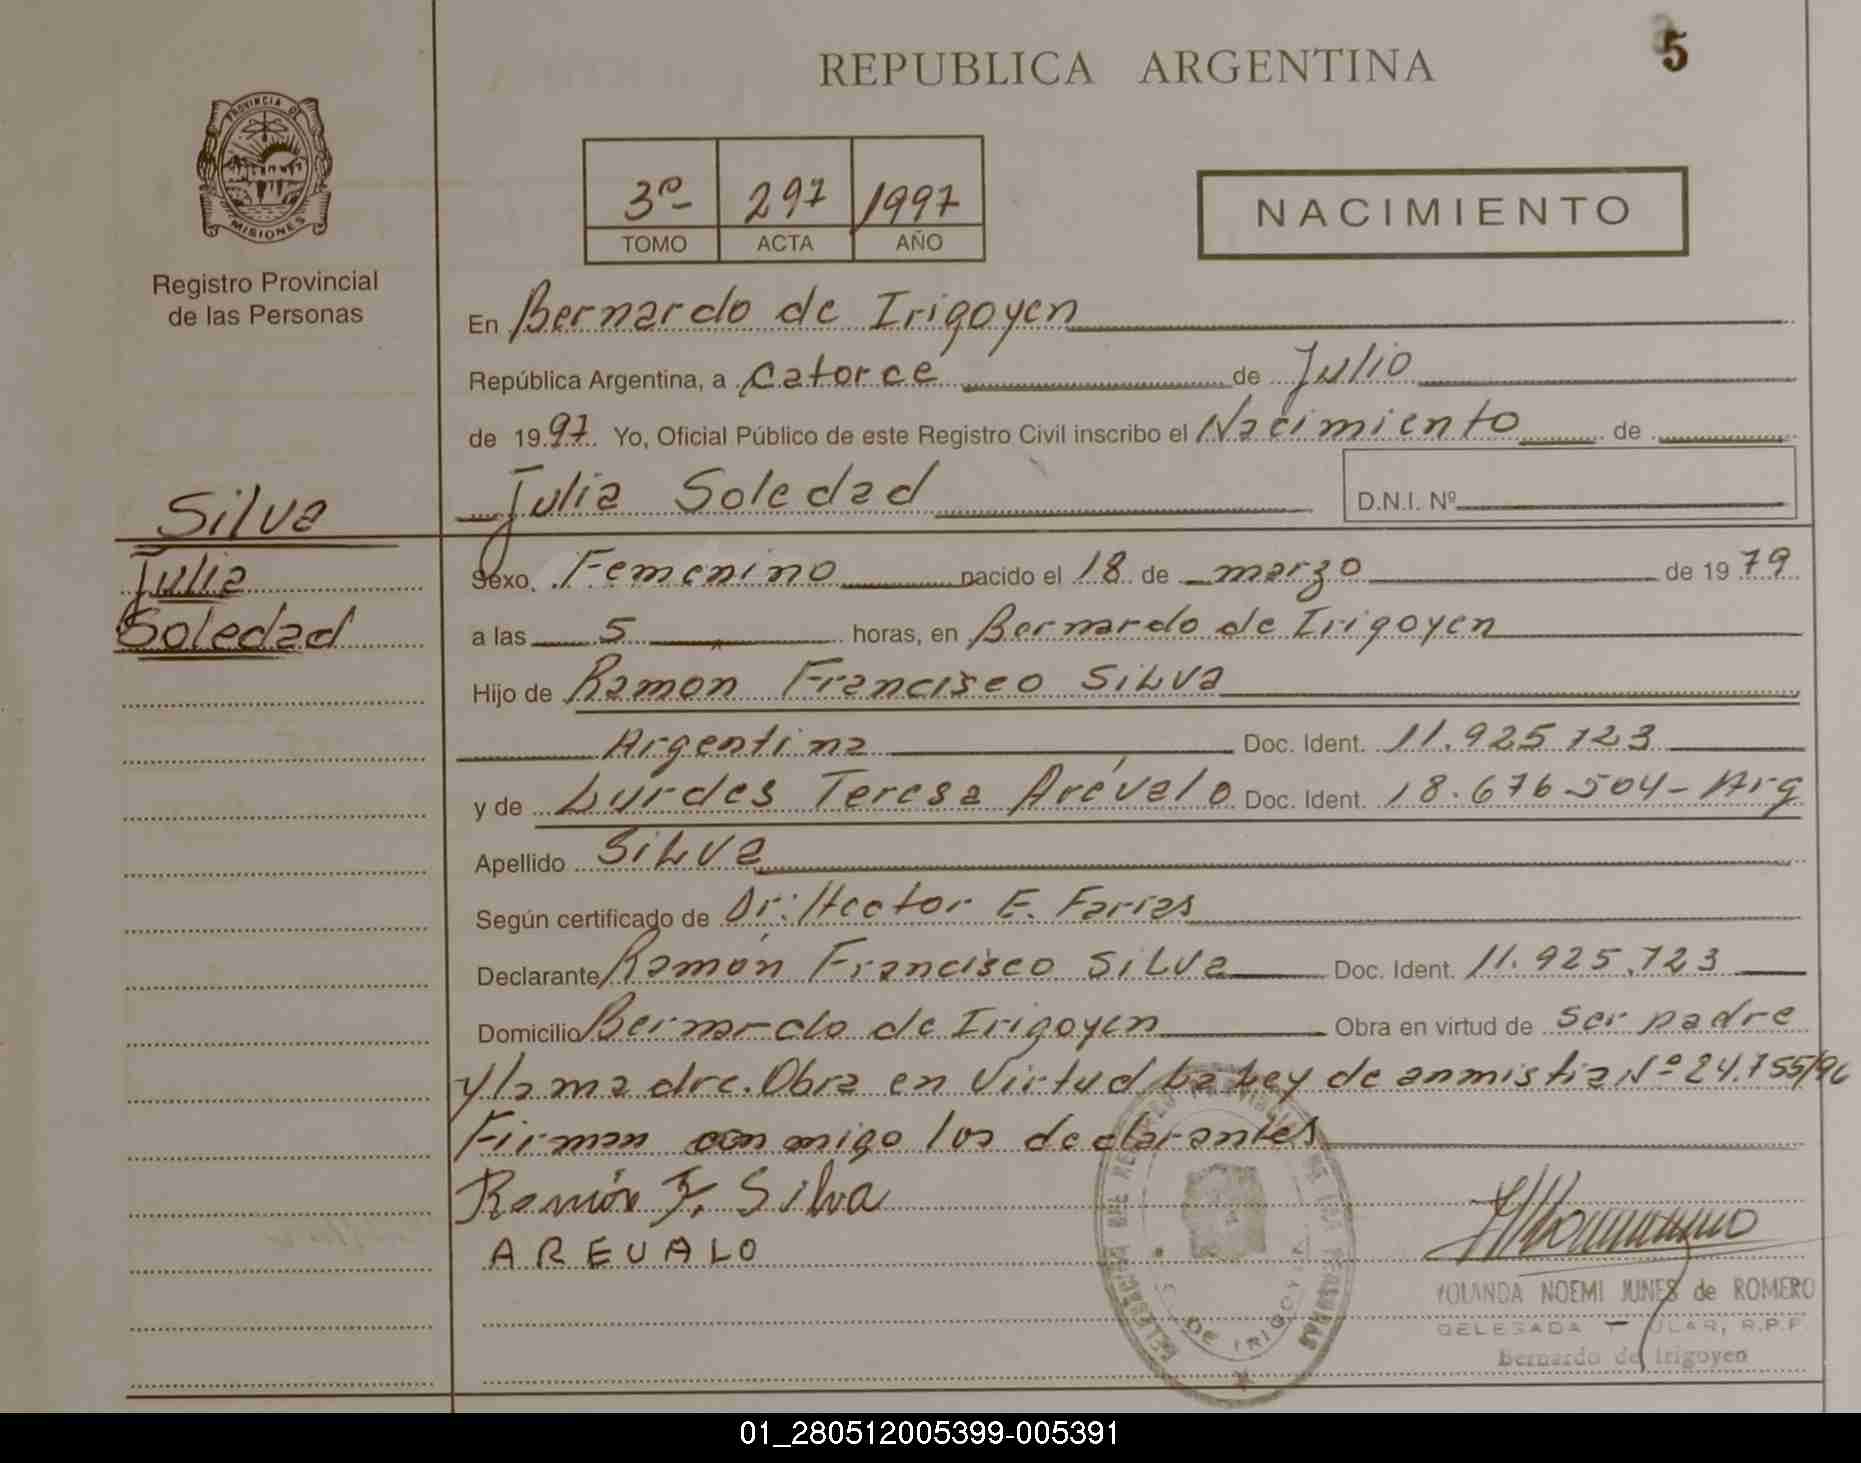 5
REPUBLICA ARGENTINA
PROVINCIA DE
MISIONES
Registro Provincial
de las Personas
3º 297 1997
TOMO ACTA AÑO
NACIMIENTO
En Bernardo de Irigoyen
República Argentina, a catorce de Julio
de 1997 Yo, Oficial Público de este Registro Civil inscribo el Nacimiento de
Julia Soledad D.N.I. Nº
Silva
Julia
Soledad
Sexo, Femenino nacido el 18 de marzo de 1979
a las 5 horas, en Bernardo de Irigoyen
Hijo de Ramon Francisco SiLva
Argentina Doc. Ident. 11.925.723
y de Lurdes Teresa Arévalo Doc. Ident. 18.676.504- Arg
Apellido SiLva
Según certificado de Dr: Hector E. Farias
Declarante Ramón Francisco SiLva Doc. Ident. 11.925.723
Domicilio Bernardo de Irigoyen Obra en virtud de ser padre
y la madre. Obra en virtud La Ley de anmistia Nº 24.755/96
Firman con migo los declarantes
Ramón F. Silva
AREVALO
DE IRIGOYEN
YOLANDA NOEMI JUNES de ROMERO
DELEGADA TITULAR, R.P.P.
Bernardo de Irigoyen
01_280512005399-005391